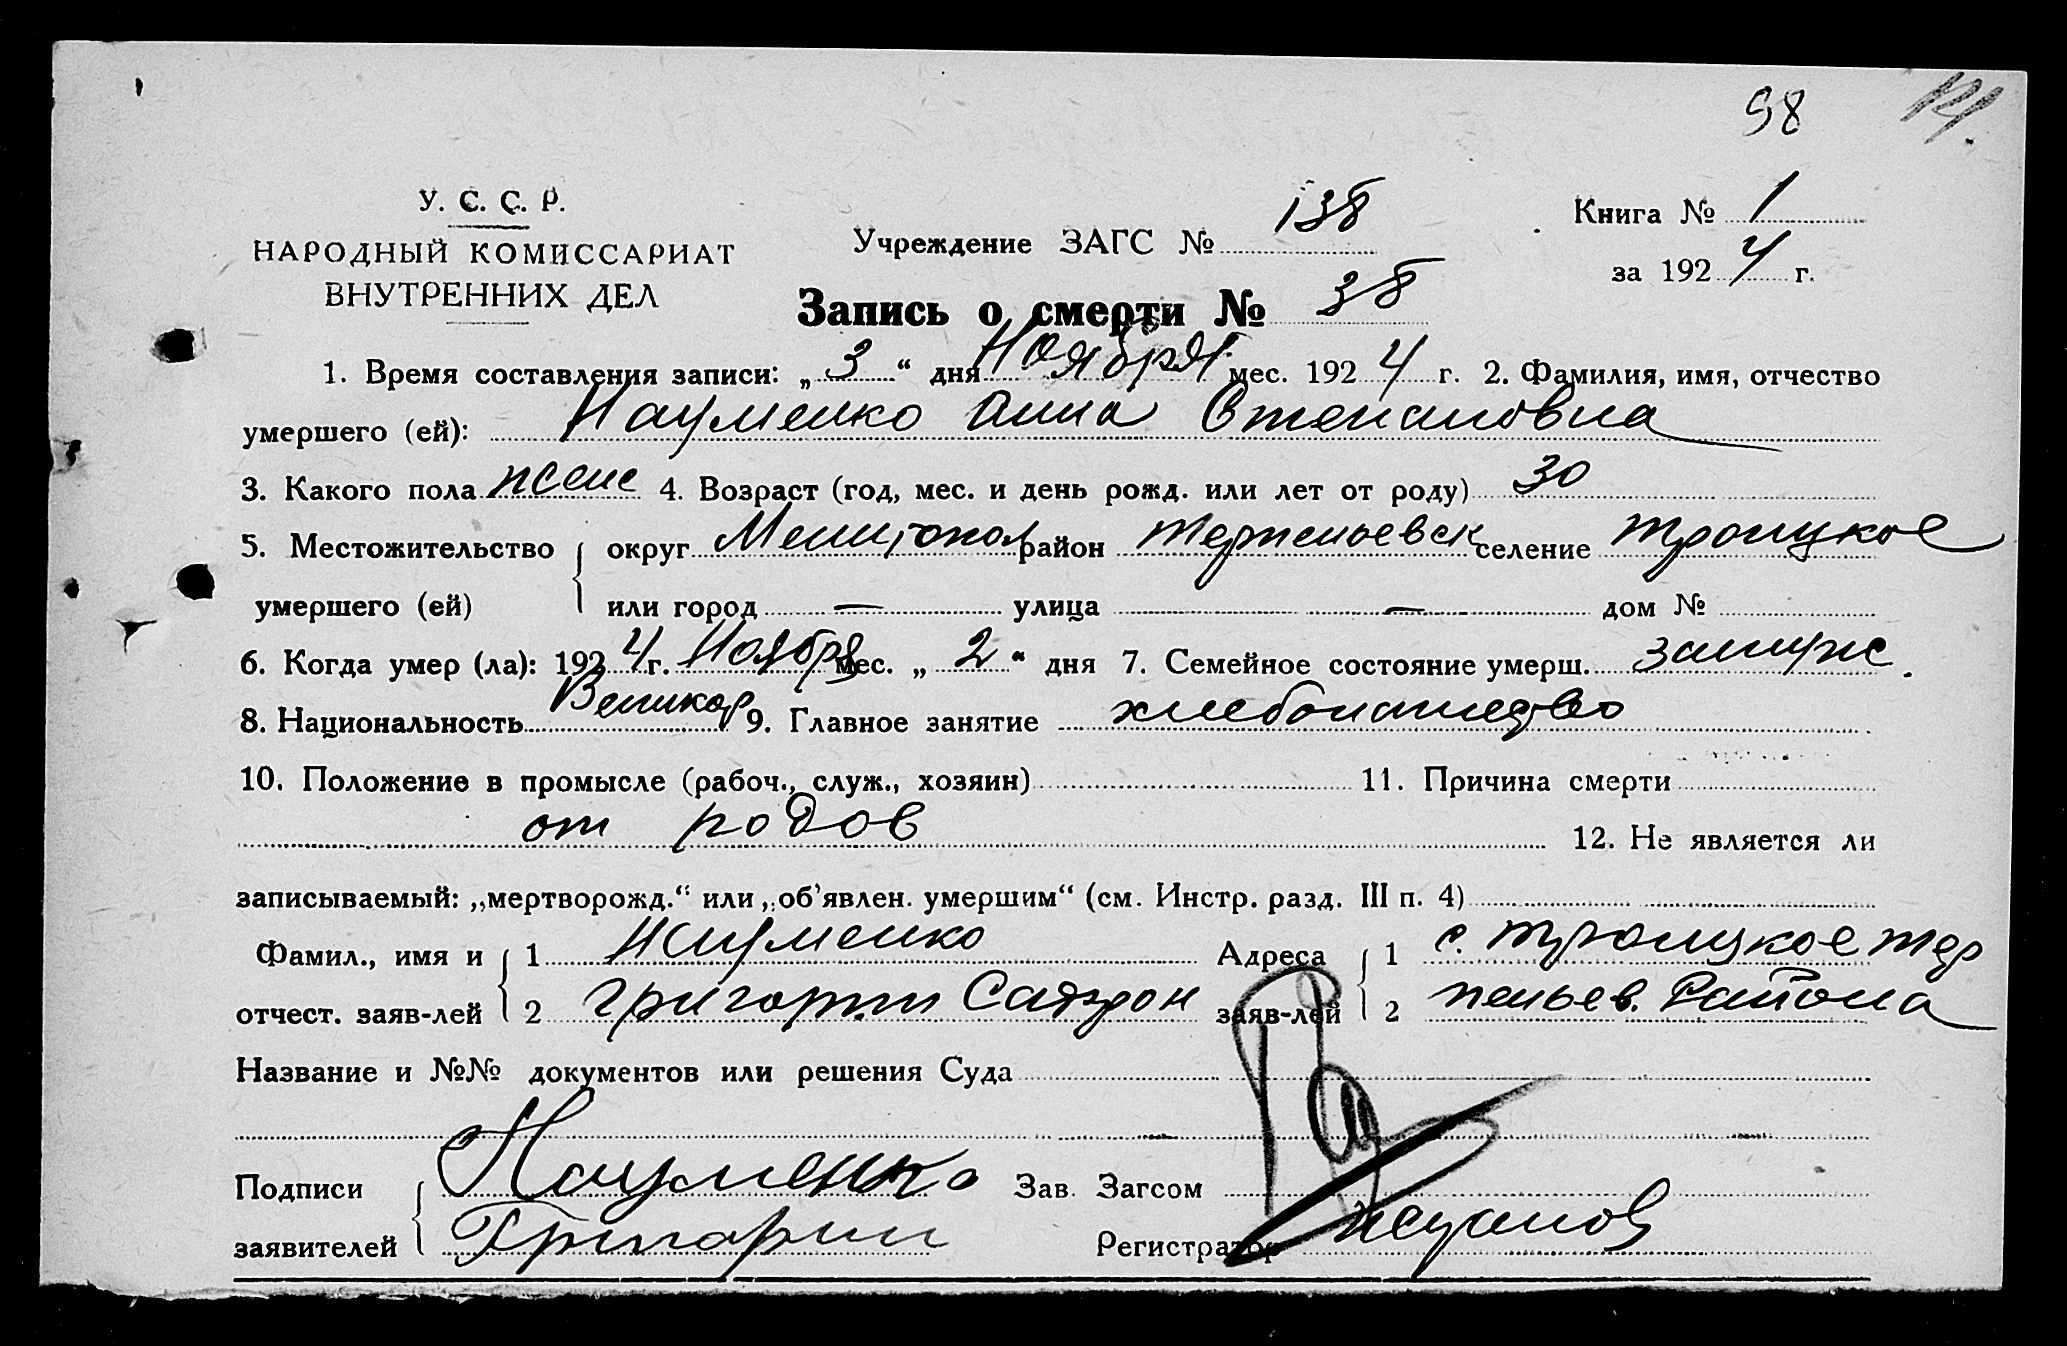 98
У. С. С. Р.
НАРОДНЫЙ КОМИССАРИАТ
ВНУТРЕННИХ ДЕЛ
Учреждение ЗАГС № 138
Книга № 1
за 1924 г.
Запись о смерти № 38
1. Время составления записи: „3“ дня Ноября мес. 1924 г. 2. Фамилия, имя, отчество
умершего (ей): Науменко Анна Степановна
3. Какого пола женс 4. Возраст (год, мес. и день рожд. или лет от роду) 30
5. Местожительство округ Мелитопол район Терпеньевск селение Троицкое
умершего (ей) или город — улица — дом №
6. Когда умер (ла): 1924 г. Ноября мес. „2“ дня 7. Семейное состояние умерш. замуж.
8. Национальность Великор 9. Главное занятие хлебопашество
10. Положение в промысле (рабоч., служ., хозяин) 11. Причина смерти
от родов 12. Не является ли
записываемый: „мертворожд.“ или „об’явлен. умершим“ (см. Инстр. разд. III п. 4)
Фамил., имя и 1 Науменко Адреса 1 с. Троицкое Тер
отчест. заяв-лей 2 Григорий заяв-лей 2 пеньев. Района
Название и №№ документов или решения Суда
Подписи Науменко Зав. Загсом
заявителей Григории Регистратор